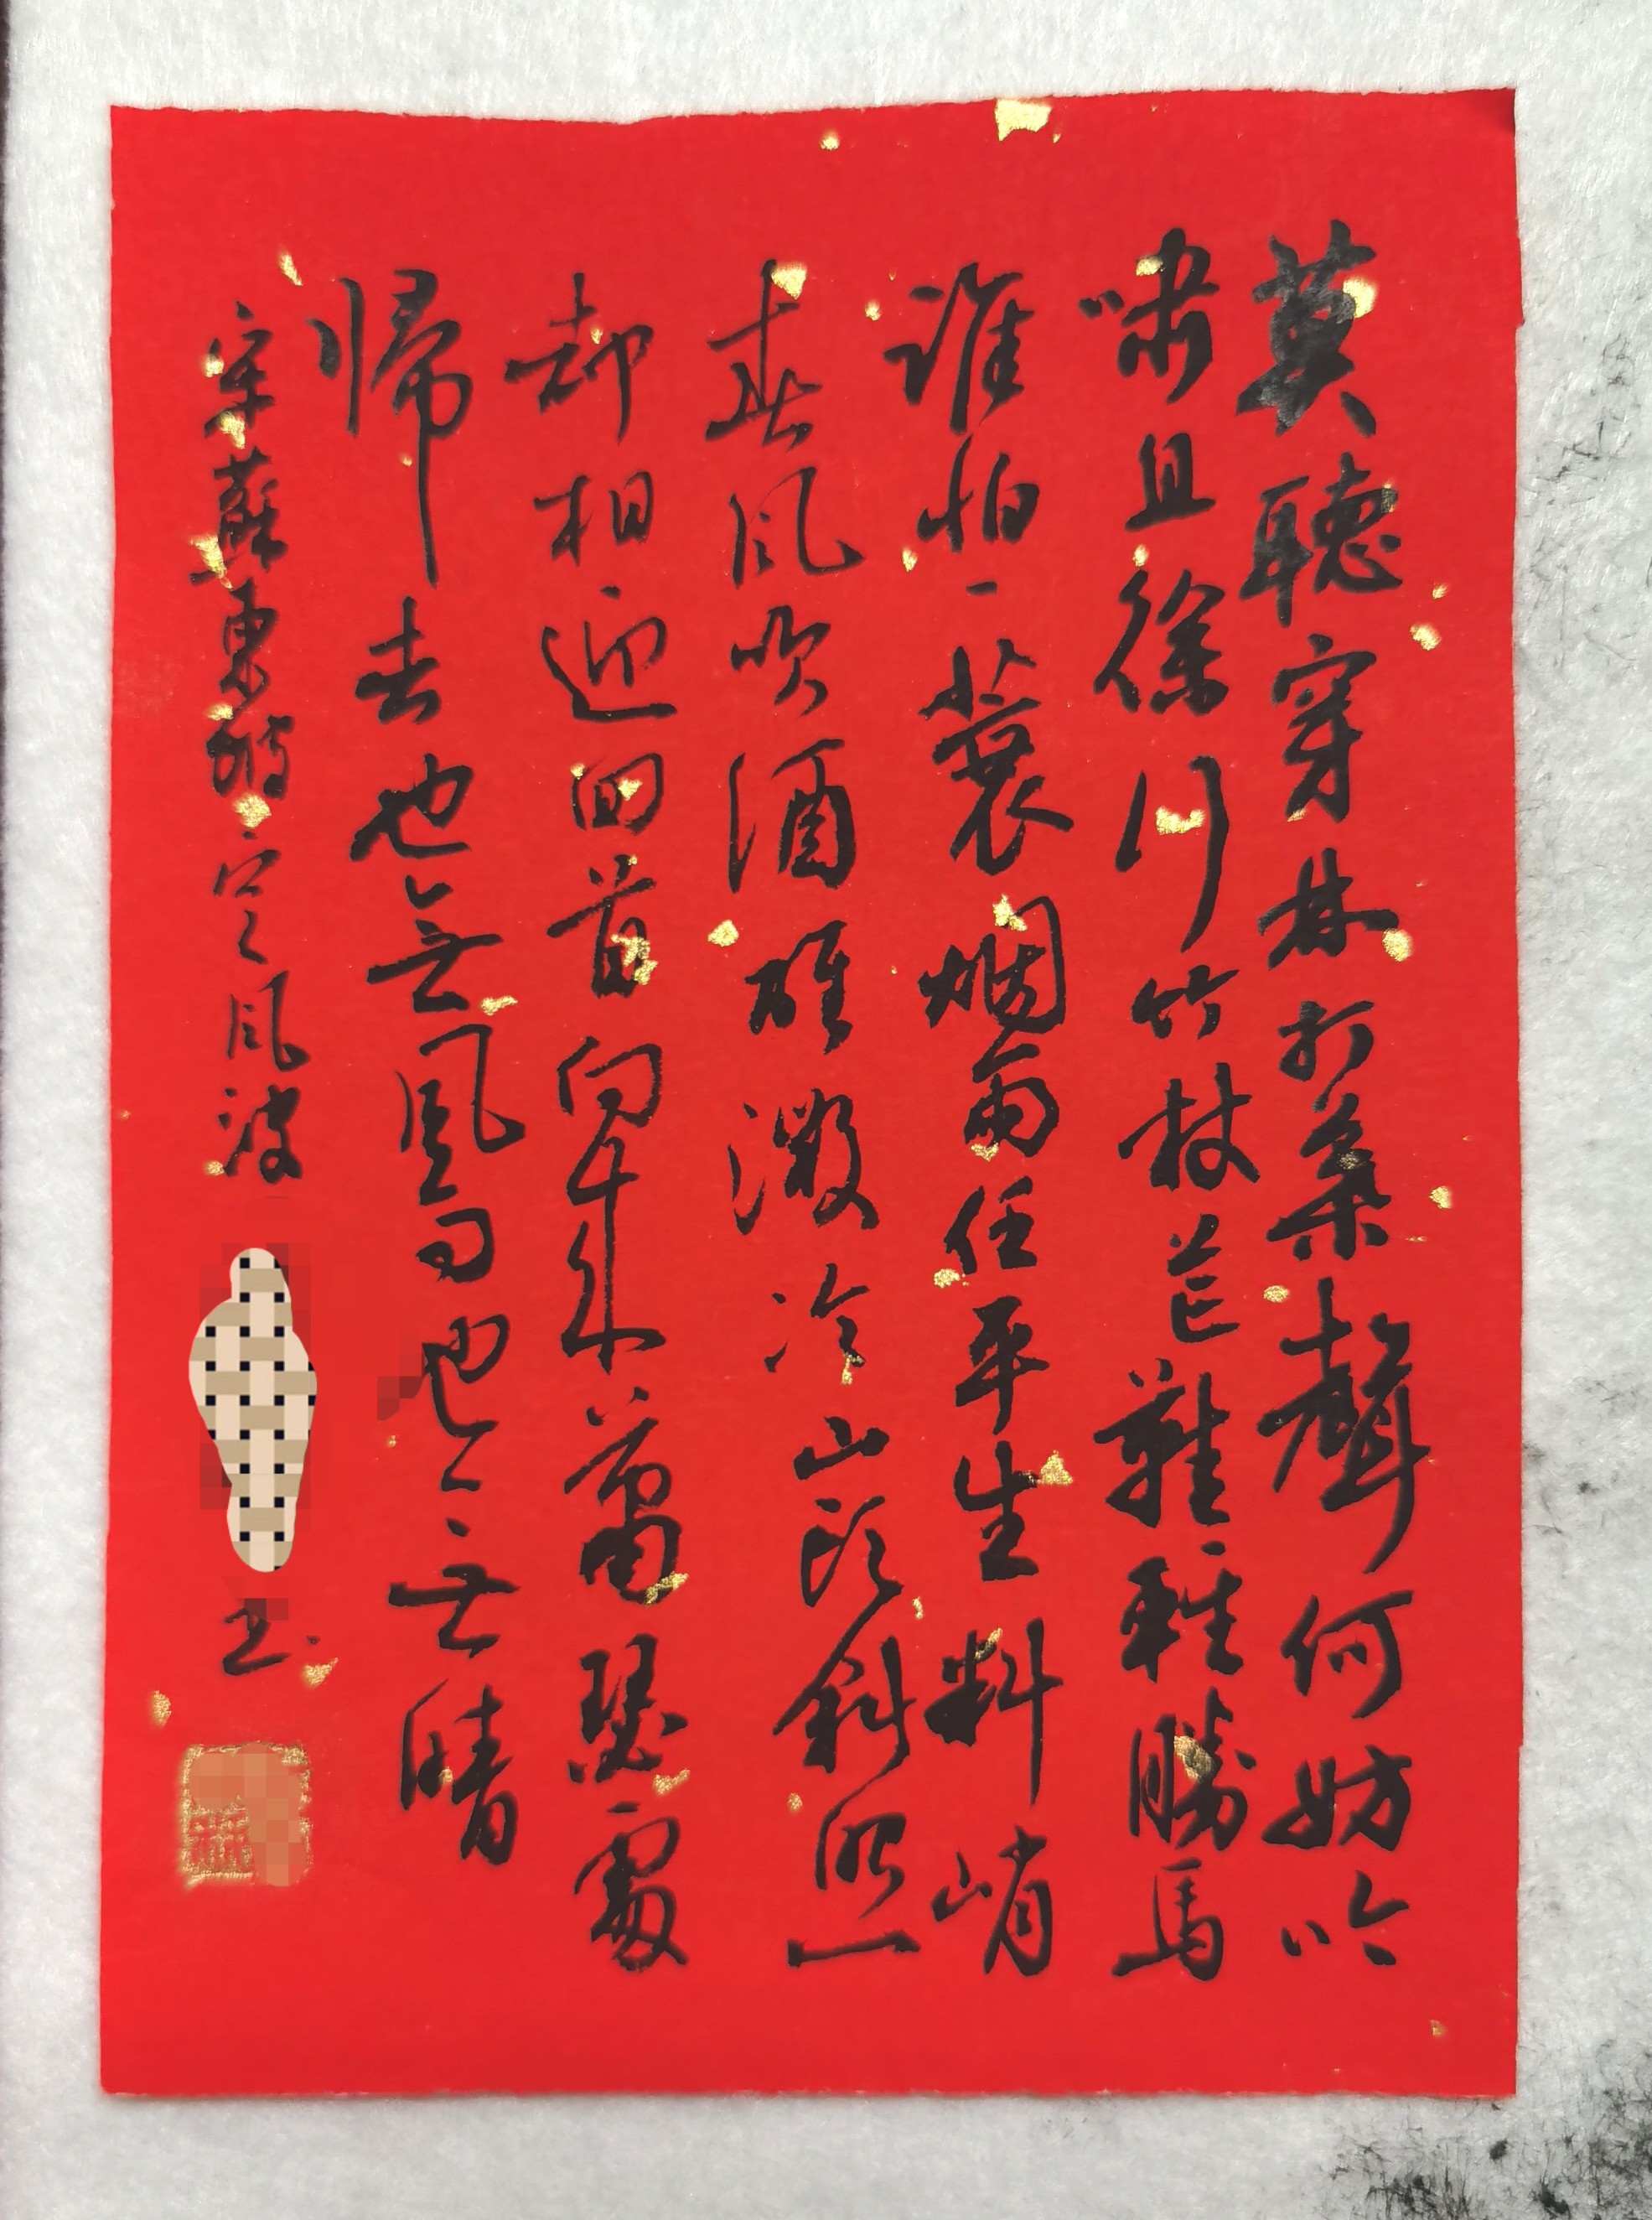 莫聽穿林打葉聲何妨吟
嘯且徐行竹杖芒鞋輕勝馬
誰怕一蓑烟雨任平生料峭
春風吹酒醒微冷山頭斜照
却相迎回首向來蕭瑟處
帰去也無風雨也無晴
宋蘇東坡定風波 书